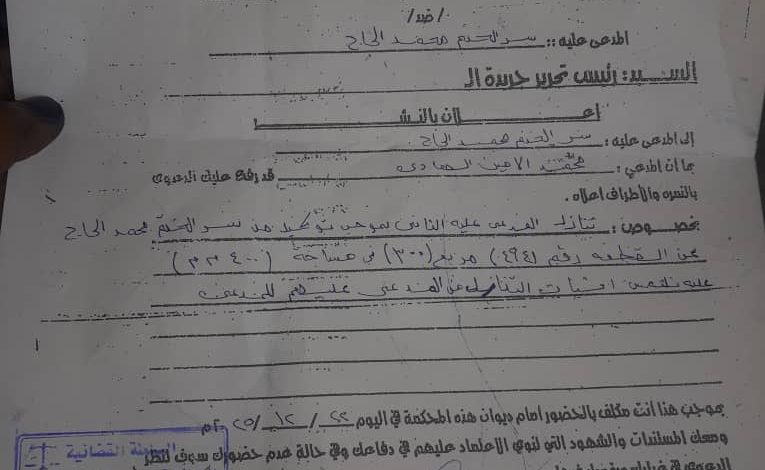 /ضد/
المدعى عليه :: سر الختم محمد الحاج
السيد: رئيس تحرير جريدة الـ
إعــــــلان بالنشـــــر
إلى المدعى عليه : سر الختم محمد الحاج
بما ان المدعي : محمد الامين الصادق قد رفع عليك الدعوى
بالنمره والأطراف اعلاه .
بخصوص : تنازل المدعى عليه الثاني بموجب توكيل من سر الختم محمد الحاج
عن القطعه رقم (٤٩٤) مربع (٣٠٠) في مساحة (٤٠٠ م م)
عليه نلتمس اثبات التنازل من المدعى عليهم للمدعى
بموجب هذا أنت مكلف بالحضور امام ديوان هذه المحكمة في اليوم ٢٢ / ١٢ / ٢٥ ٢٠م
ومعك المستندات والشهود التي تنوي الاعتماد عليهم في دفاعك وفي حالة عدم حضورك سوف تنظر
القضائية